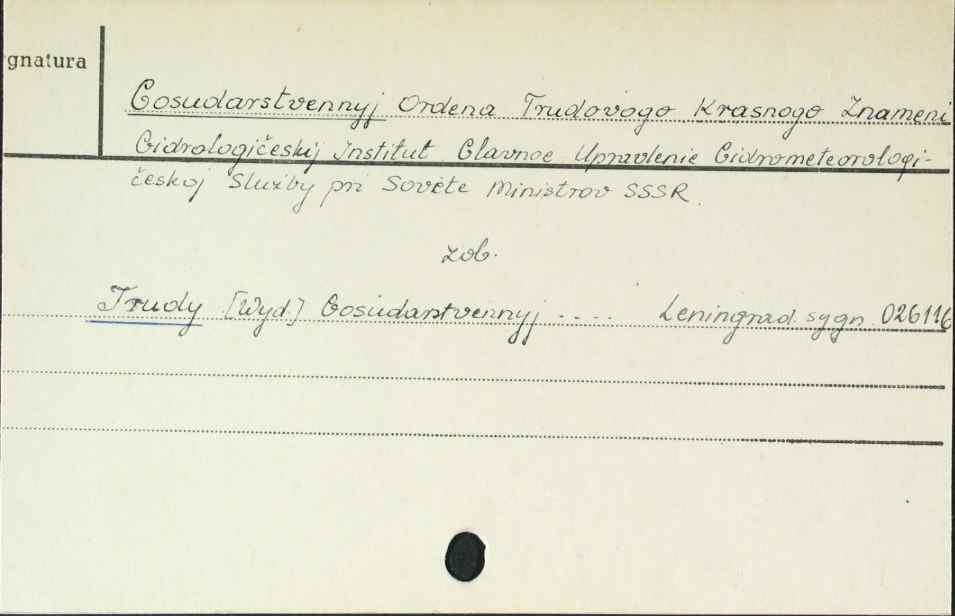 gnatura
Gosudarstvennyj Ordena Trudovogo Krasnogo Znameni
Gidrologičeskij Institut Glavnoe Upravlenie Gidrometeorologi-
českoj Služby pri Sovete Ministrov SSSR.
zob.
Trudy [Wyd.] Gosudarstvennyj .... Leningrad. sygn. 026116